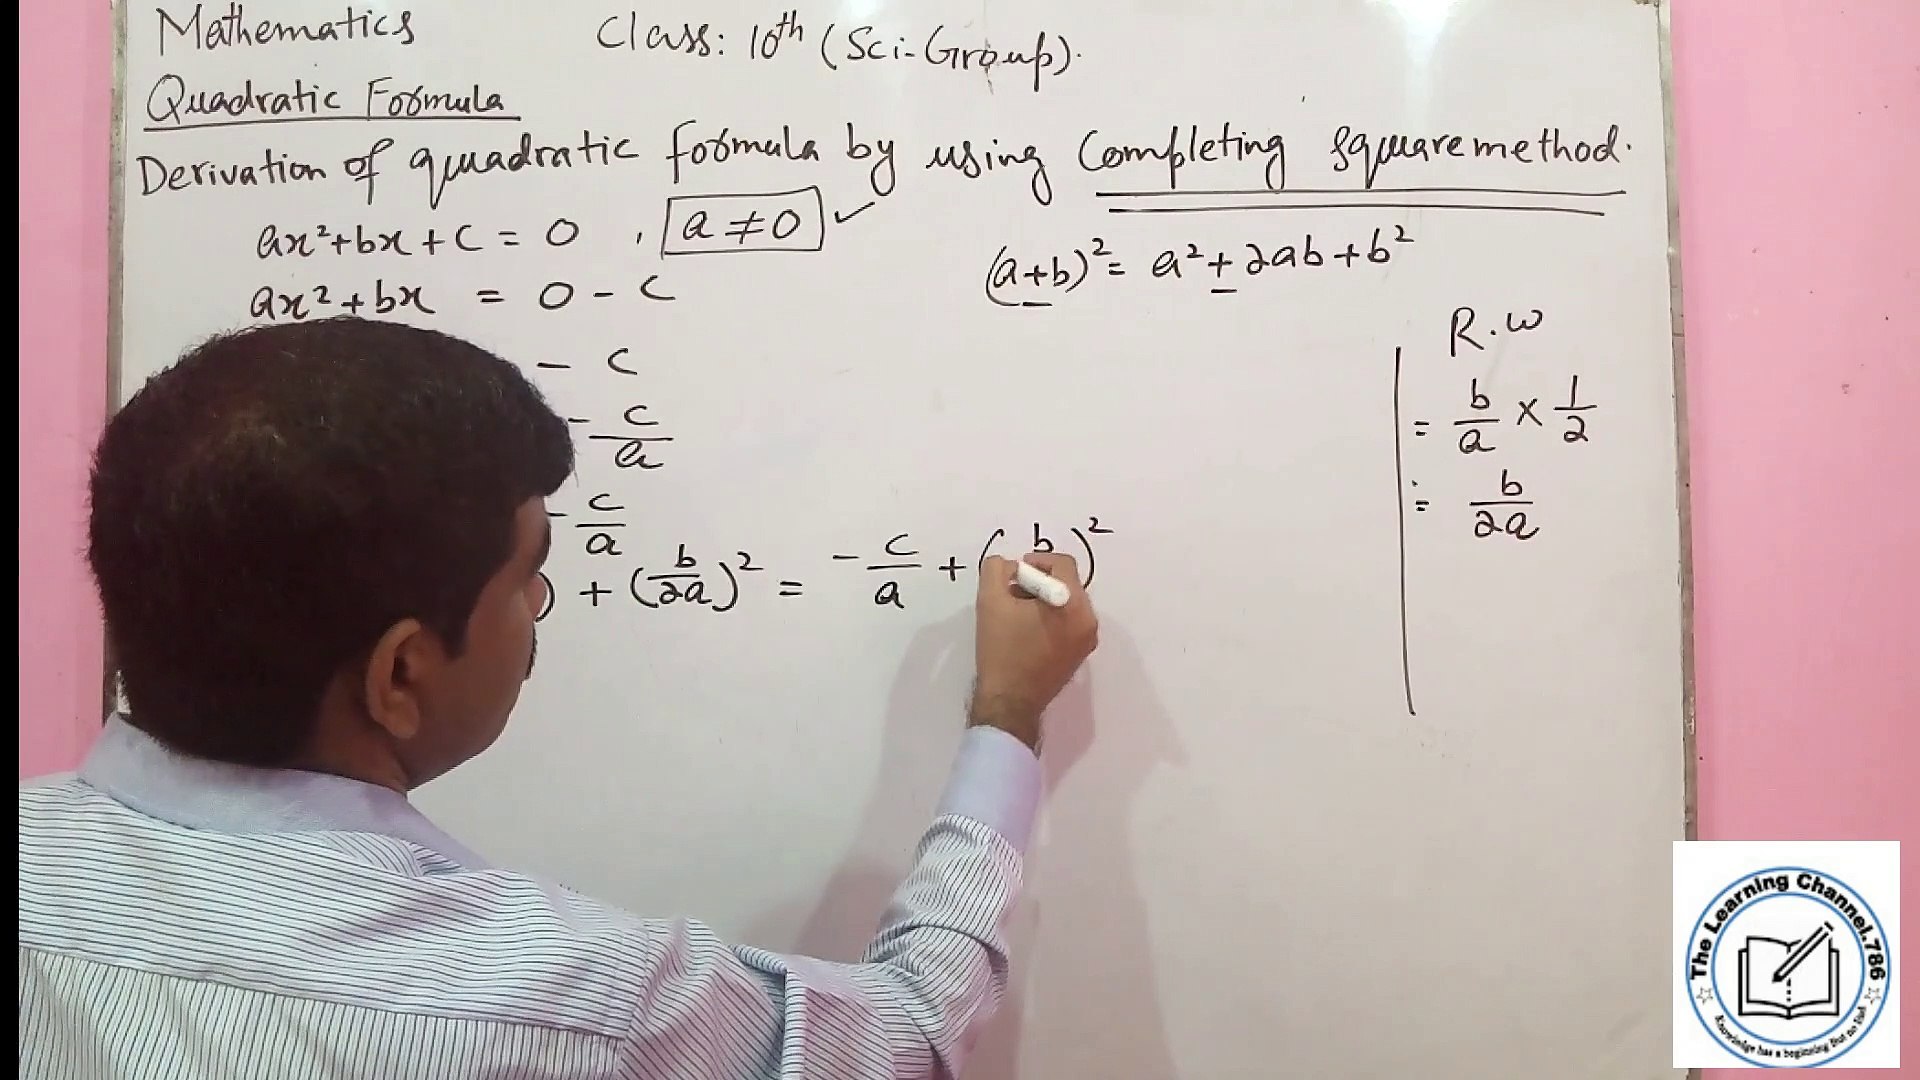 Mathematics Class: 10th (Sci-Group).
Quadratic Formula
Derivation of quadratic formula by using Completing square method.
ax²+bx+c = 0 , a ≠ 0 ✓
(a+b)² = a² + 2ab + b²
ax² + bx = 0 - c
- c
- c/a
- c/a
) + (b/2a)² = - c/a + ( b )²
R.W
= b/a × 1/2
= b/2a
The Learning Channel.786
Knowledge has a beginning But no End